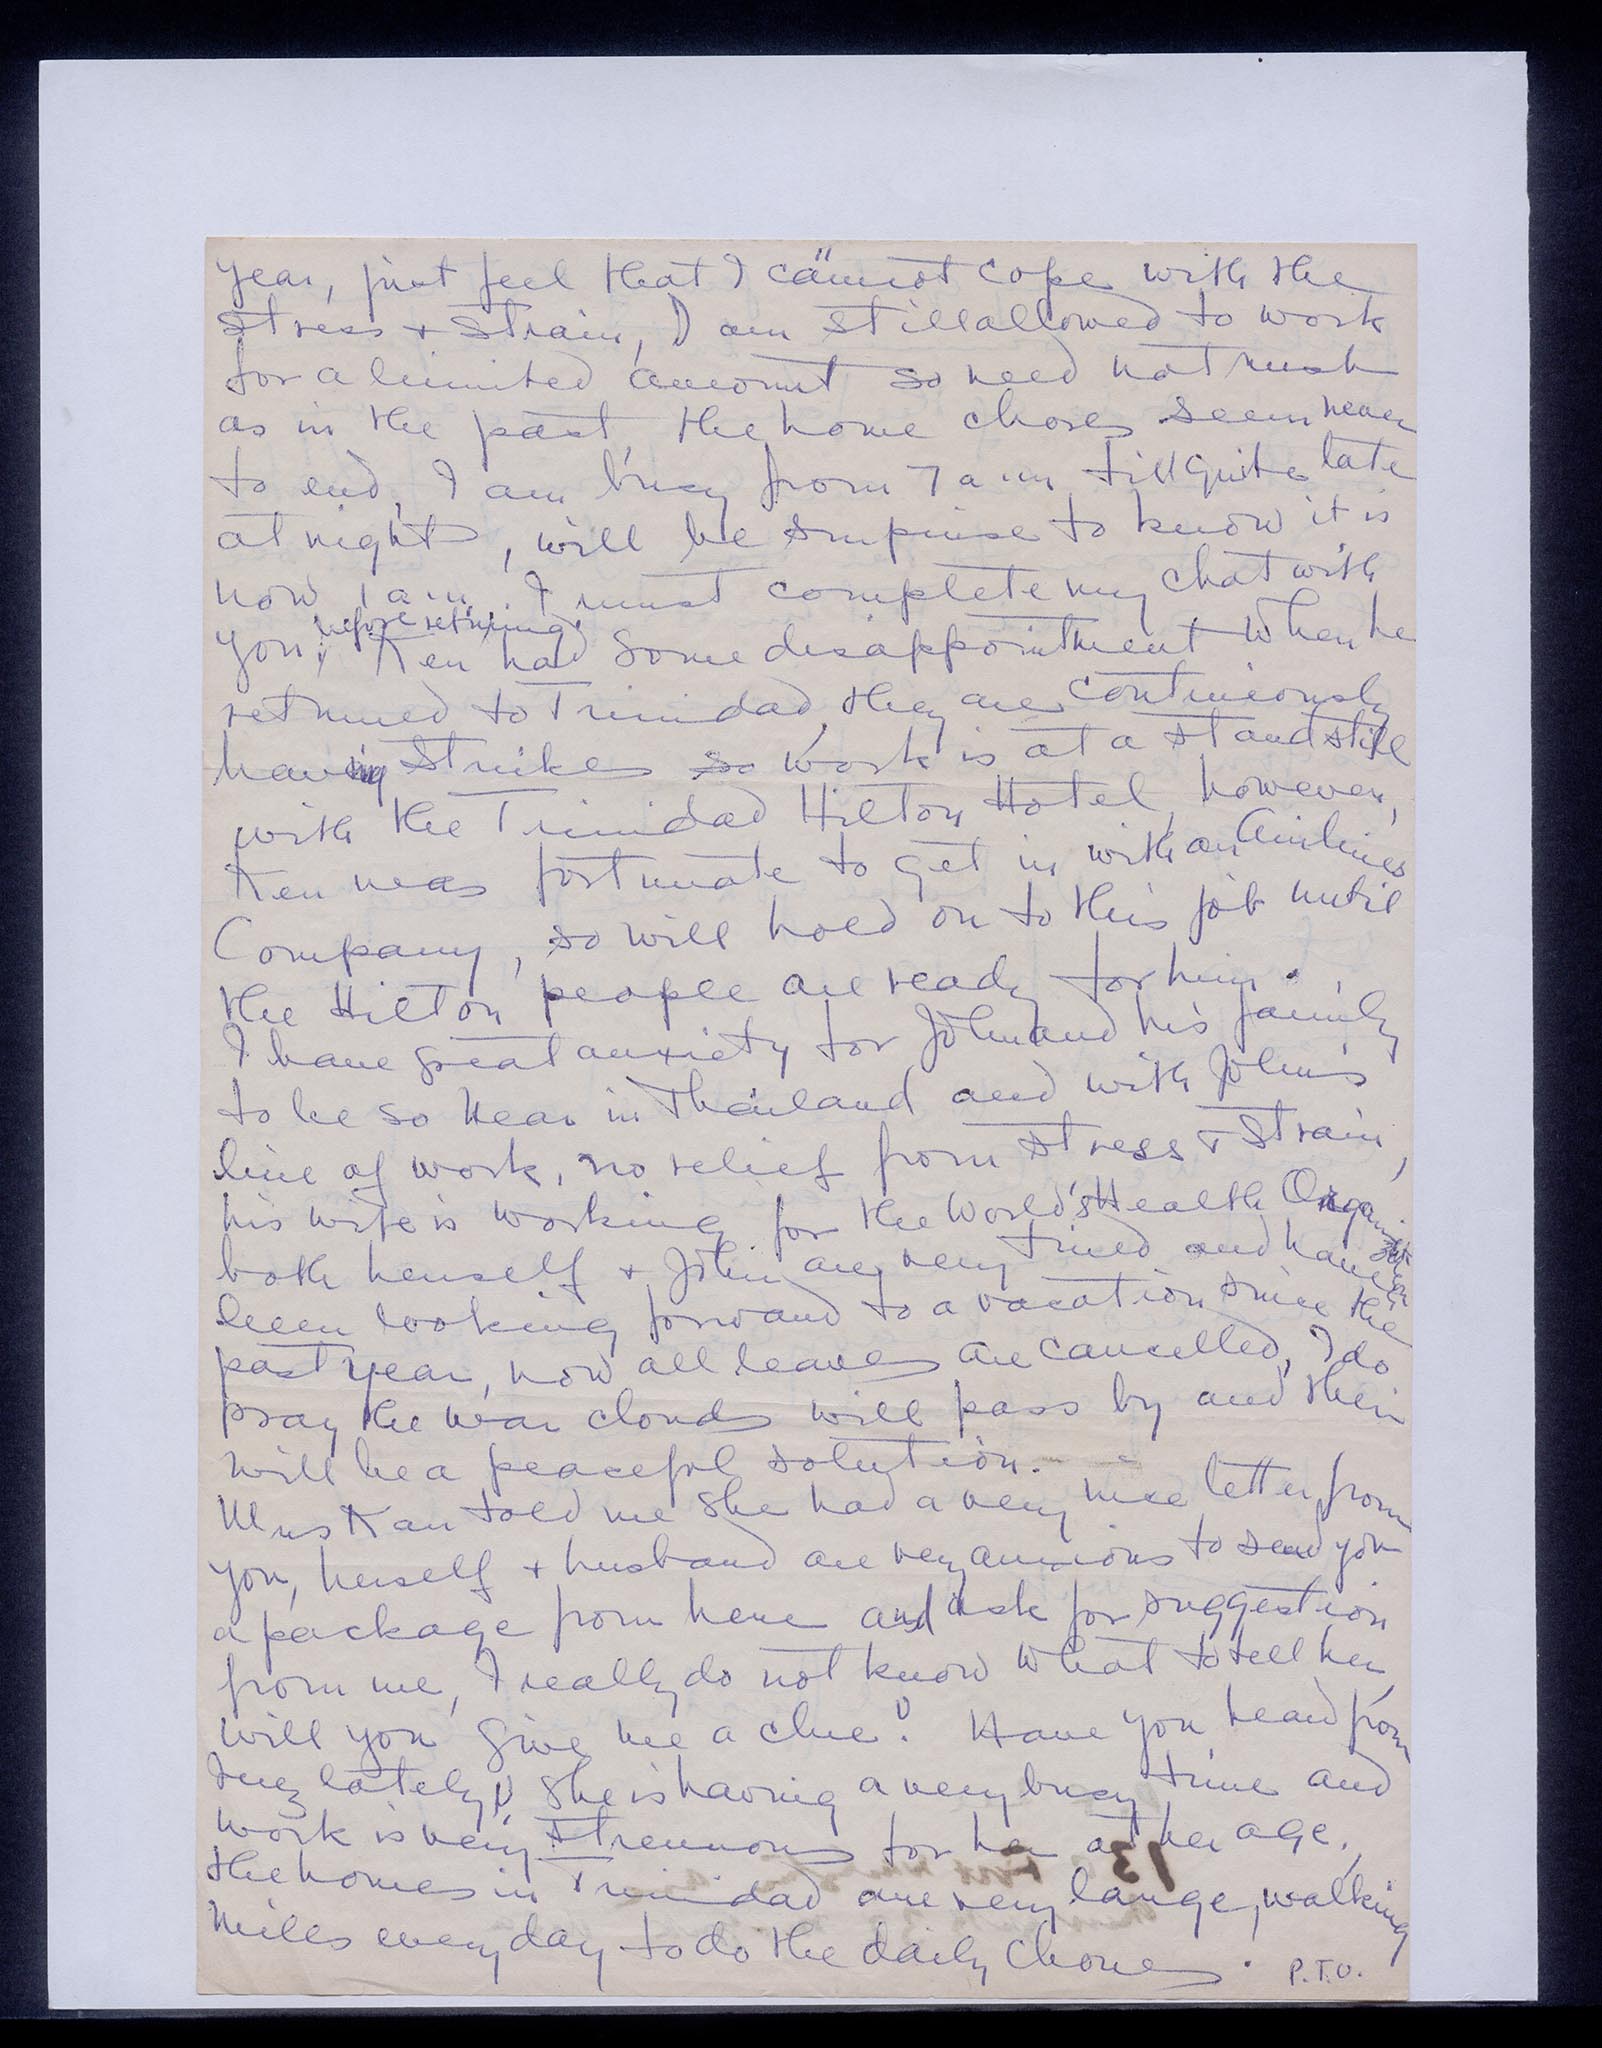 year, just feel that I cannot cope with the
stress & strain, I am still allowed to work
for a limited amount so need not rush
as in the past, the home chores seem never
to end, I am busy from 7 am till quite late
at night, will be surprise to know it is
now 1 am. I must complete my chat with
you, before retiring. Ken had some disappointment when he
returned to Trinidad, they are continuously
having strikes so work is at a standstill
with the Trinidad Hilton Hotel, however,
Ken was fortunate to get in with an Airlines
Company, so will hold on to this job until
the Hilton people are ready for him.
I have great anxiety for John and his family
to be so near in Thailand and with John's
line of work, no relief from stress & strain,
his wife is working for the World's Health Organization
both herself & John are very tired and have
been looking forward to a vacation since the
past year, now all leaves are cancelled, I do
pray the war clouds will pass by and their
will be a peaceful solution.
Mrs Kan told me she had a very nice letter from
you, herself & husband are very anxious to send you
a package from here and ask for suggestion
from me, I really do not know what to tell her,
will you give me a clue? Have you heard from
lately? She is having a very busy time and
work is very strenuous for her at her age,
the homes in Trinidad are very large, walking
miles every day to do the daily chores. P.T.O.
13